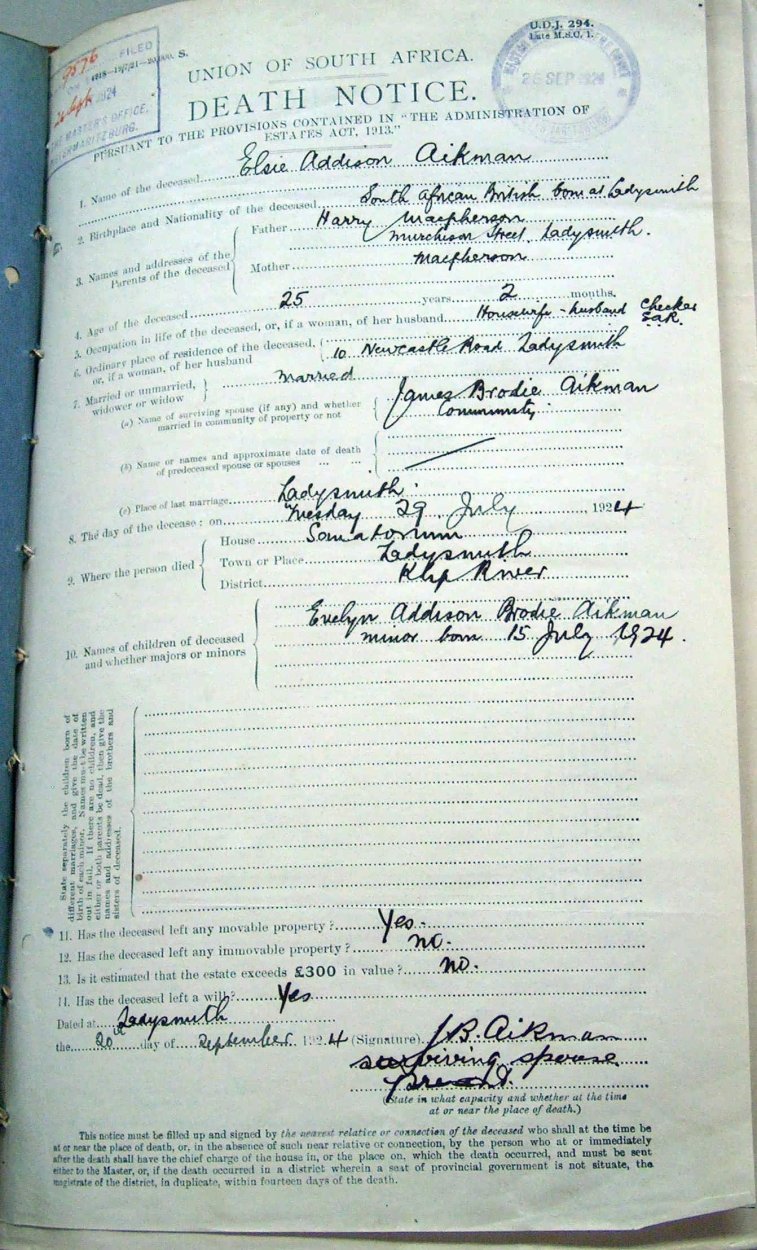 U.D.J. 294.
Late M.S.C. 1.
9576 FILED
1218—12/7/21—20,000. S.
26 Sept 1924
THE MASTER'S OFFICE,
PIETERMARITZBURG.
26 SEP 1924
UNION OF SOUTH AFRICA.
DEATH NOTICE.
PURSUANT TO THE PROVISIONS CONTAINED IN "THE ADMINISTRATION OF
ESTATES ACT, 1913."
1. Name of the deceased Elsie Addison Aikman
2. Birthplace and Nationality of the deceased South African British born at Ladysmith
3. Names and addresses of the Parents of the deceased Father Harry Macpherson
Murchison Street, Ladysmith.
Mother Macpherson
4. Age of the deceased 25 years 2 months.
5. Occupation in life of the deceased, or, if a woman, of her husband Housewife - husband Checker SAR.
6. Ordinary place of residence of the deceased, or, if a woman, of her husband 10 Newcastle Road Ladysmith
7. Married or unmarried, widower or widow Married
(a) Name of surviving spouse (if any) and whether married in community of property or not James Brodie Aikman
Community.
(b) Name or names and approximate date of death
of predeceased spouse or spouses ... ...
(c) Place of last marriage Ladysmith.
8. The day of the decease: on Tuesday 29 July 1924
9. Where the person died House Sanatorium
Town or Place Ladysmith
District Klip River
10. Names of children of deceased and whether majors or minors
Evelyn Addison Brodie Aikman
minor born 15 July 1924.
State separately the children born of
different marriages, and give the date of
birth of each minor. Names must be written
out in full. If there are no children, and
either or both parents be dead, then give the
names and addresses of the brothers and
sisters of deceased.
11. Has the deceased left any movable property? Yes.
12. Has the deceased left any immovable property? no.
13. Is it estimated that the estate exceeds £300 in value? no.
14. Has the deceased left a will? Yes
Dated at Ladysmith
the 20th day of September 1924 (Signature) J.B. Aikman
surviving spouse
Present.
(State in what capacity and whether at the time
at or near the place of death.)
This notice must be filled up and signed by the nearest relative or connection of the deceased who shall at the time be
at or near the place of death, or, in the absence of such near relative or connection, by the person who at or immediately
after the death shall have the chief charge of the house in, or the place on, which the death occurred, and must be sent
either to the Master, or, if the death occurred in a district wherein a seat of provincial government is not situate, the
magistrate of the district, in duplicate, within fourteen days of the death.